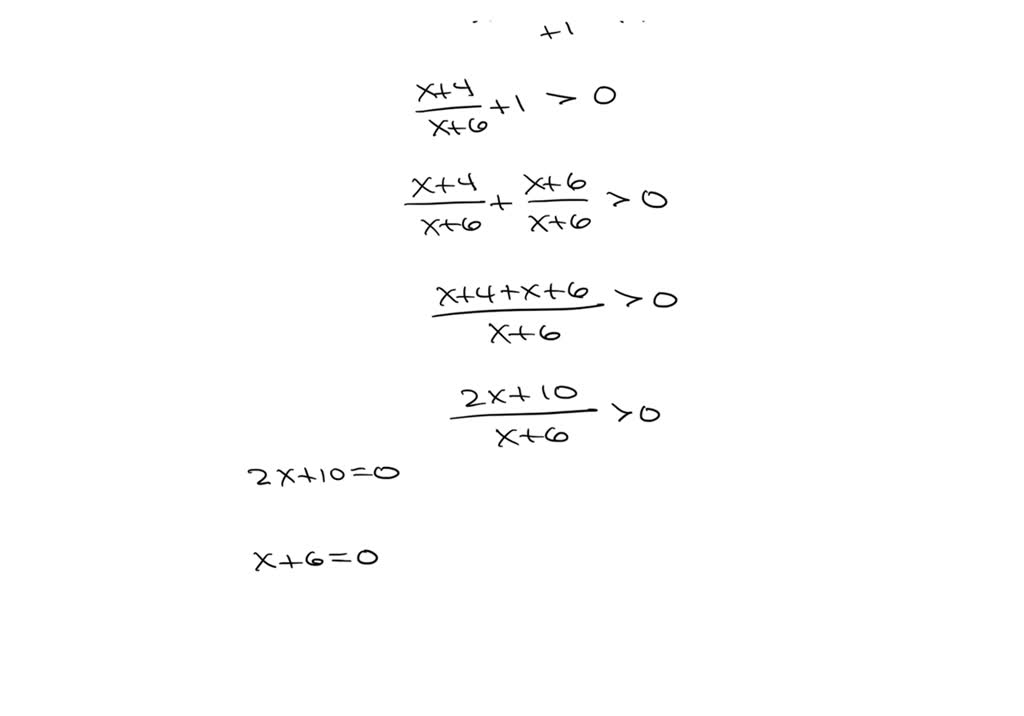 +1
x+4/x+6 +1 > 0
x+4/x+6 + x+6/x+6 > 0
x+4+x+6/x+6 > 0
2x+10/x+6 > 0
2x+10=0
x+6=0